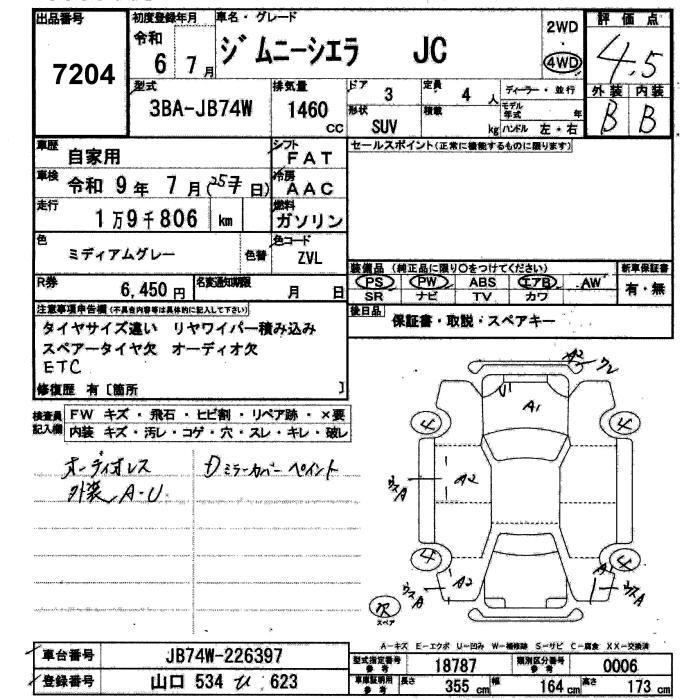 出品番号
7204
初度登録年月
令和
6年 7月
車名・グレード
ジムニーシエラ JC
2WD
4WD
評価点
4.5
外装 内装
B B
型式
3BA-JB74W
排気量
1460 CC
ドア
3
定員
4 人
形状
SUV
積載
kg
ディーラー・並行
モデル年式 年
ハンドル 左・右
車歴
自家用
シフト
FAT
車検
令和 9年 7月(25日)
冷房
AAC
走行
1万9千806 km
燃料
ガソリン
色
ミディアムグレー
色替
色コード
ZVL
R券
6,450円
名変通知期限
月 日
セールスポイント(正常に機能するものに限ります)
装備品 (純正品に限り○をつけてください)
PS PW ABS エアB AW
SR ナビ TV カワ
新車保証書
有・無
後日品
保証書・取説・スペアキー
注意事項申告欄(不具合内容等は具体的に記入して下さい)
タイヤサイズ違い リヤワイパー積み込み
スペアータイヤ欠 オーディオ欠
ETC
修復歴 有〔箇所 〕
検査員記入欄
FW キズ・飛石・ヒビ割・リペア跡・×要
内装 キズ・汚レ・コゲ・穴・スレ・キレ・破レ
オーディオレス
外装 A-U
Dミラーカバー ペイント
A2
ワレ
U1
A1
4
4
ウスA
A2
4
4
ウスA
A2
ウスA
欠
スペア
A-キズ E-エクボ U-凹み W-補修跡 S-サビ C-腐食 XX-交換済
車台番号
JB74W-226397
登録番号
山口 534 ひ 623
型式指定番号
参考
18787
類別区分番号
参考
0006
車庫証明用
参考
長さ
355 cm
幅
164 cm
高さ
173 cm